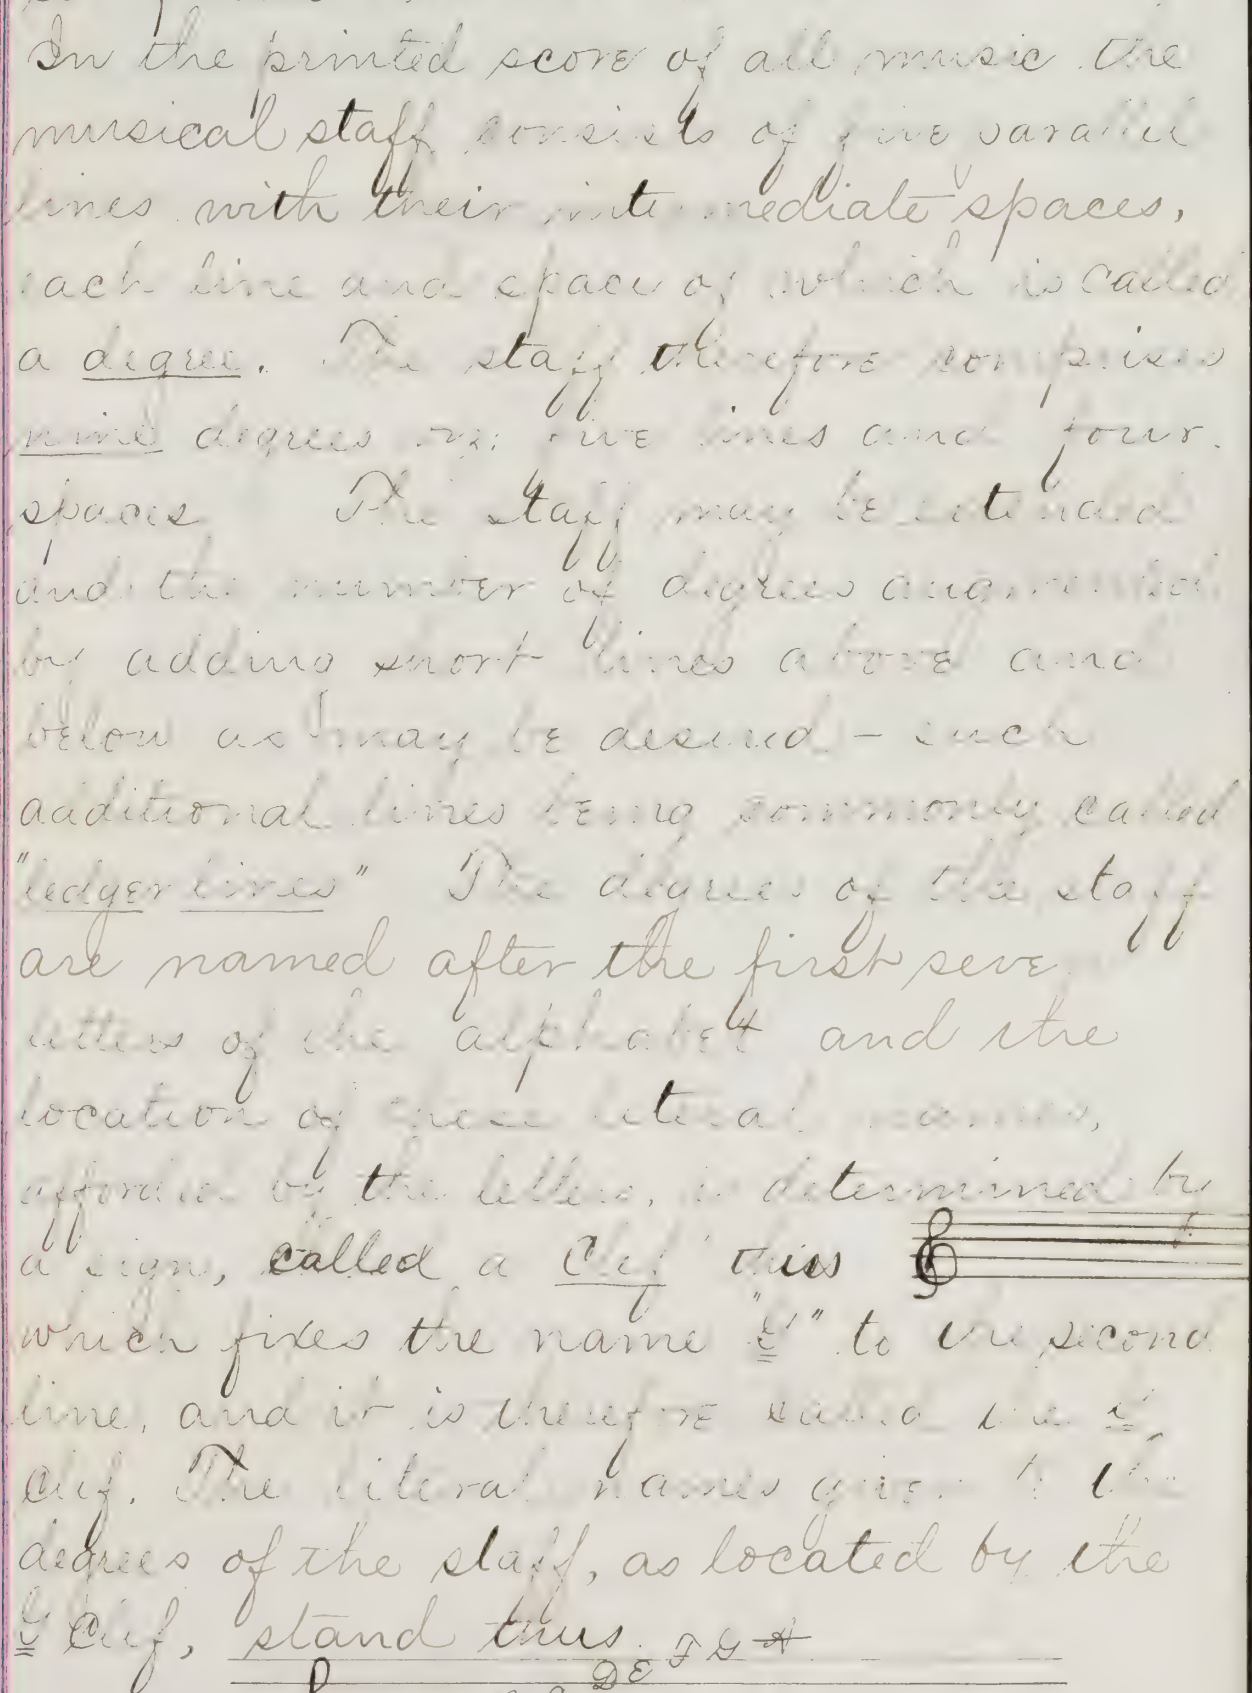 In the printed score of all music the
musical staff consists of five parallel
lines with their intermediate spaces,
each line and space of which is called
a degree. The staff therefore comprises
nine degrees or five lines and four
spaces The staff may be extended
and the number of degrees augmented
by adding short lines above and
below as may be desired - such
additional lines being commonly called
"ledger lines" The degrees of the staff
are named after the first seven
letters of the alphabet and the
location of these literal names,
afforded by the letters, is determined by
a sign, called a Clef thus
which fixes the name "G" to the second
line, and it is therefore called the G
Clef. The literal names given to the
degrees of the staff, as located by the
G Clef, stand thus.
D E F G A